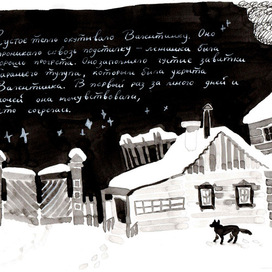 Густое тепло окутывало Валентинку. Оно
проникало сквозь подстилку – лежанка была
хорошо прогрета. Оно заполняло густые завитки
бараньего тулупа, которым была укрыта
Валентинка. В первый раз за много дней и
ночей она почувствовала,
что согрелась.